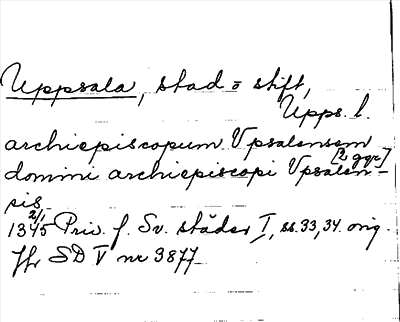 Uppsala, stad o stift,
Upps. l.
archiepiscopum Vpsalensem
[2 ggr]
domini archiepiscopi Vpsalen-
sis
1345 2/1 Priv. f. Sv. städer I, ss. 33, 34. orig.
Jfr SD V nr 3877